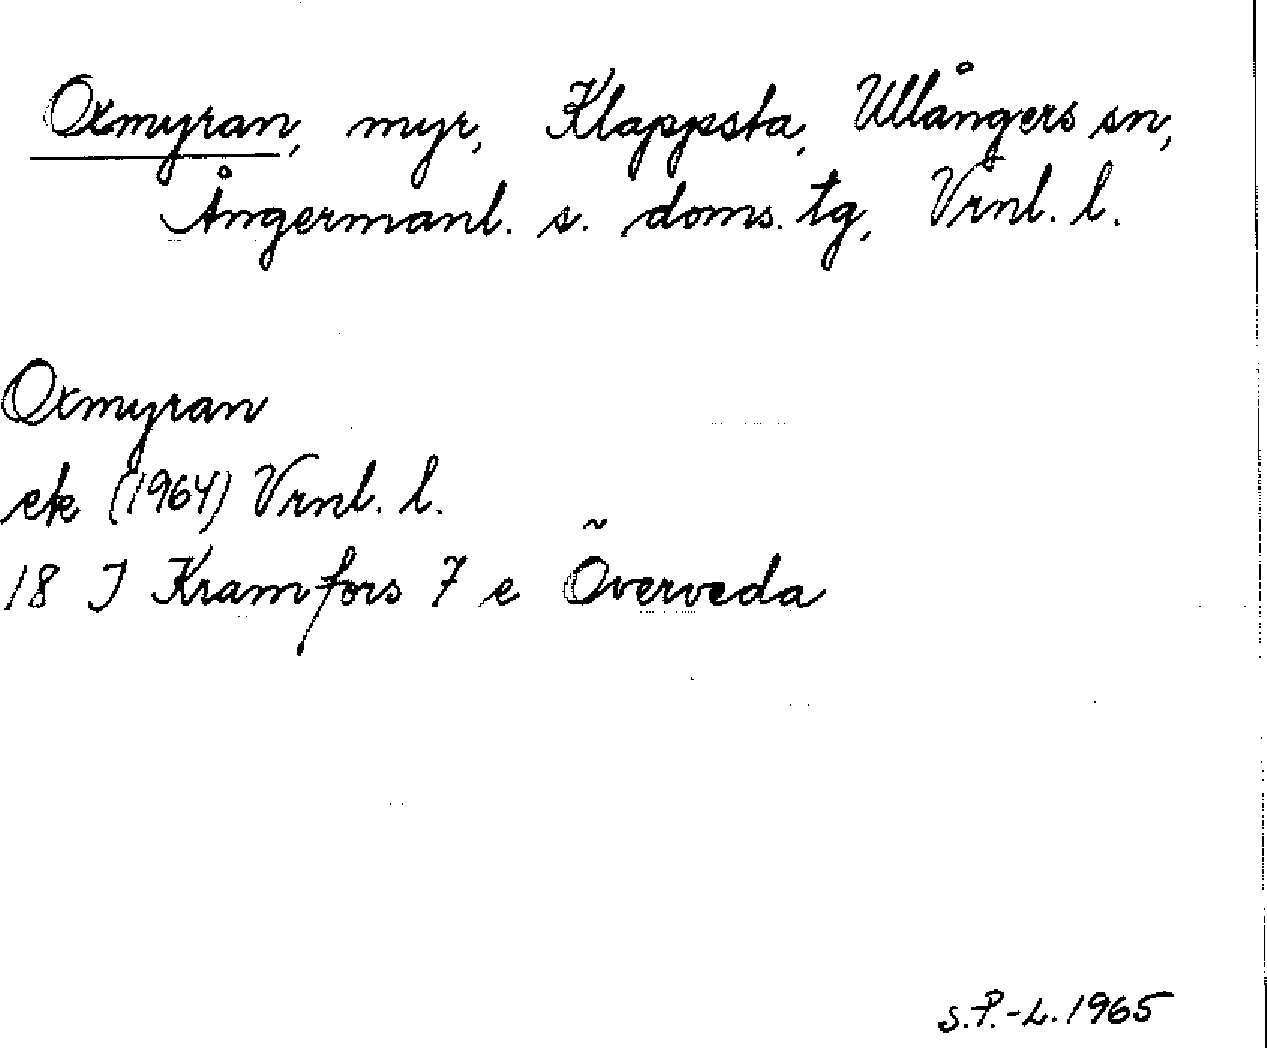 Oxmyran, myr, Klappsta, Ullångers sn,
Ångermanl. s. doms. tg, Vrnl. l.
Oxmyran
ek (1964) Vrnl. l.
18 I Kramfors 7 e Överveda
S.P.-L. 1965